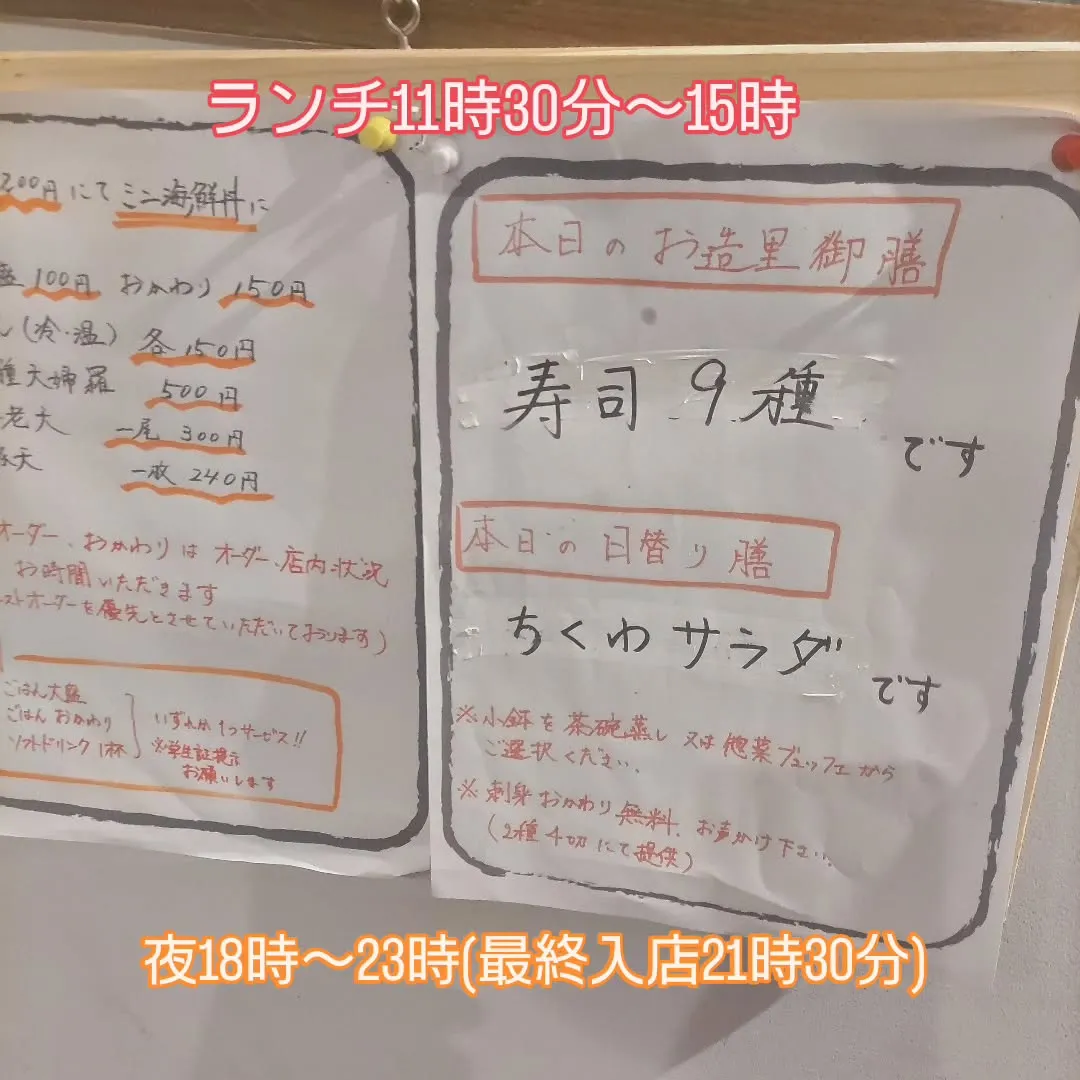 ランチ11時30分〜15時
200円にてミニ海鮮丼に
盛 100円 おかわり 150円
し(冷・温) 各150円
種天婦羅 500円
老天 一尾 300円
天 一枚 240円
オーダー、おかわりはオーダー、店内状況
お時間いただきます
ストオーダーを優先とさせていただいております)
ごはん大盛
ごはんおかわり
ソフトドリンク1杯
いずれか1つサービス!!
※学生証提示
お願いします
本日のお造里御膳
寿司9種
です
本日の日替り膳
ちくわサラダ
です
※小鉢を茶碗蒸し又は惣菜ブュッフェから
ご選択ください.
※刺身おかわり無料.お声かけ下さい.
(2種4切にて提供)
夜18時〜23時(最終入店21時30分)